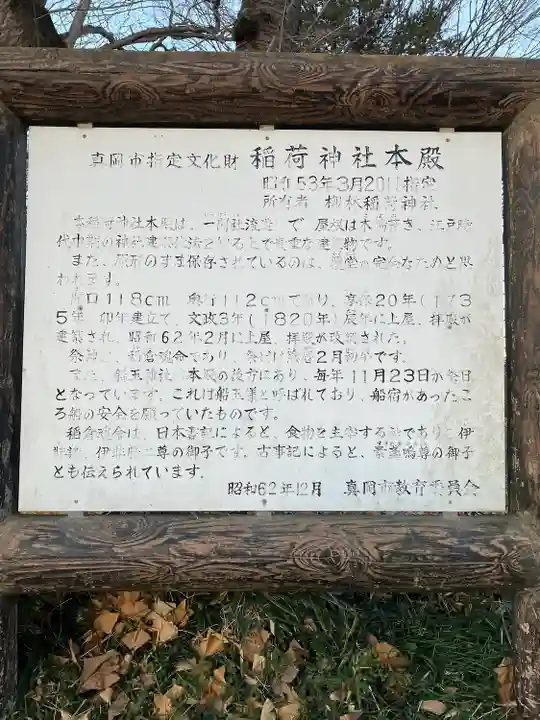 真岡市指定文化財 稲荷神社本殿
昭和53年3月20日指定
所有者 柳林稲荷神社
本稲荷神社本殿は、一間社流造で 屋根は木 葺き、江戸時
代中期の神社建築 法 いる上で貴重な建 物です。
また、原形のまま保存されているのは、 堂 完 なためと思
われます。
間口118cm 奥行112cmであり、享保20年(173
5年)卯年建立で、文政3年(1820年)辰年に上屋、拝殿が
建築され、昭和62年2月に上屋、拝殿が改築された。
祭神は、稲倉魂命であり、祭日は 2月初午です。
また、船玉神社 本殿の後方にあり、毎年11月23日が祭日
となっています。これは船玉 と呼ばれており、船宿があったこ
ろ船の安全を願っていたものです。
稲倉魂命は、日本書記によると、食物を主宰する神であり、伊
二尊の御子です。古事記によると、 尊の御子
とも伝えられています。
昭和62年12月 真岡市教育委員会